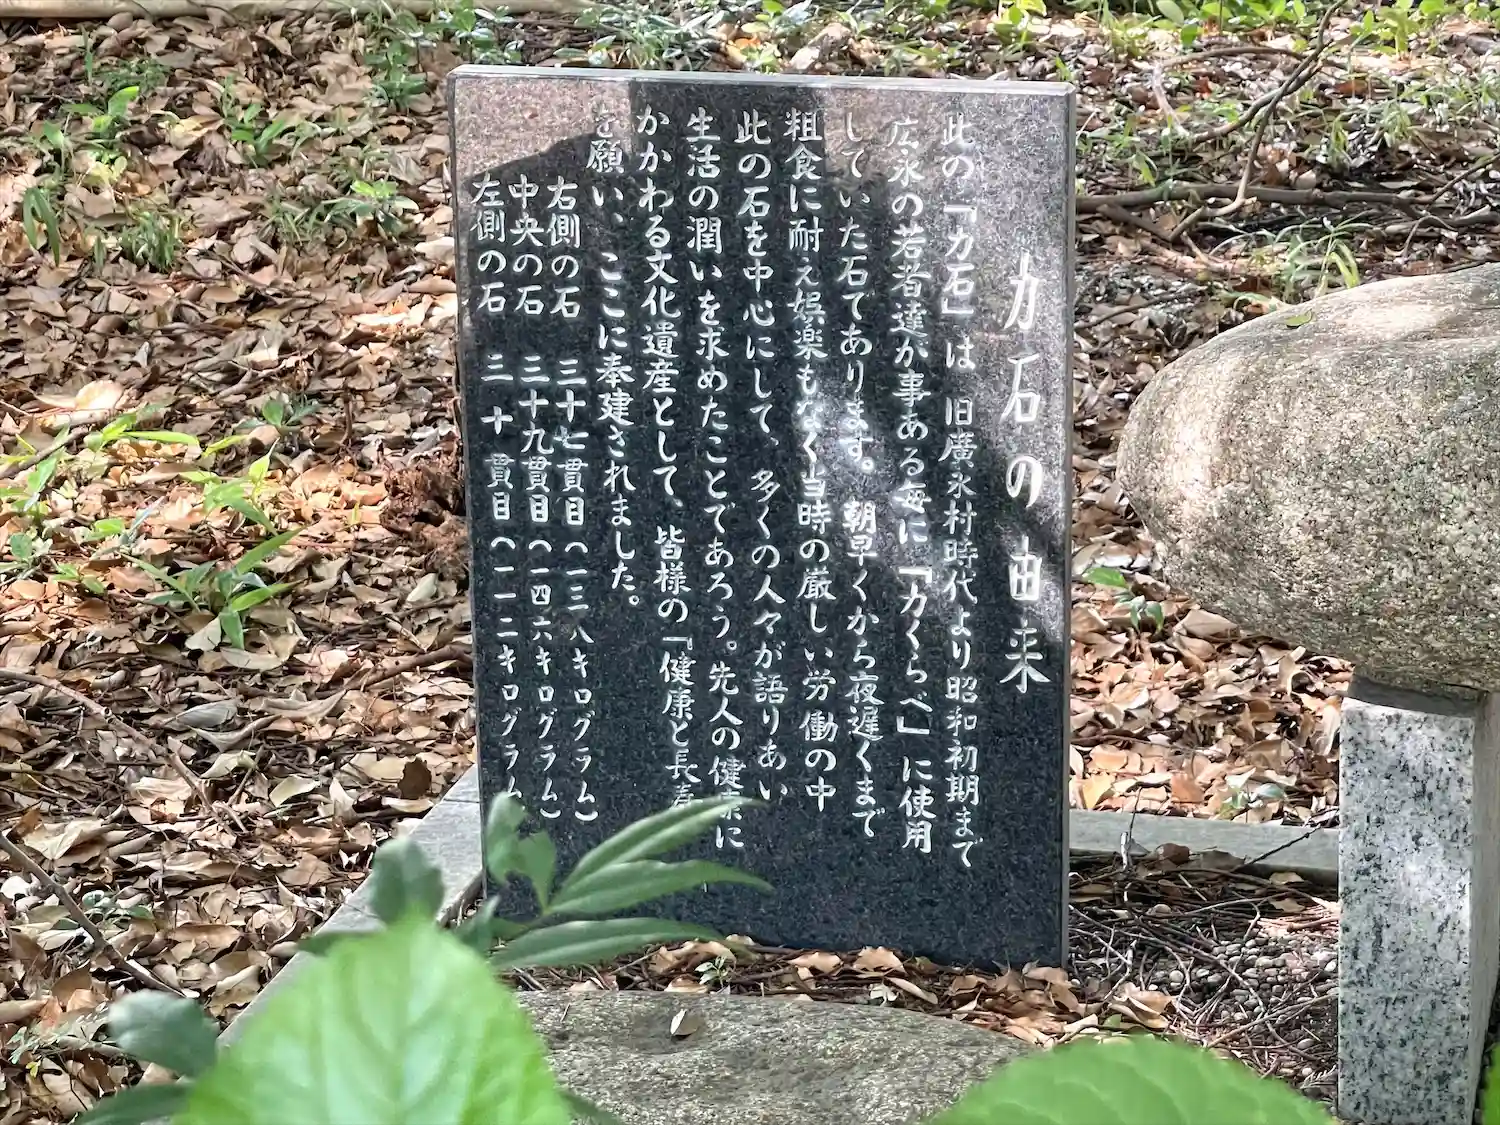 力石の由来
此の「力石」は 旧廣永村時代より昭和初期まで
広永の若者達が事ある毎に「力くらべ」に使用
していた石であります。朝早くから夜遅くまで
粗食に耐え娯楽もなく当時の厳しい労働の中
此の石を中心にして、多くの人々が語りあい
生活の潤いを求めたことであろう。先人の健康に
かかわる文化遺産として、皆様の「健康と長寿
を願い、ここに奉建されました。
右側の石 三十七貫目(一三八キログラム)
中央の石 三十九貫目(一四六キログラム)
左側の石 三十貫目(一一二キログラム